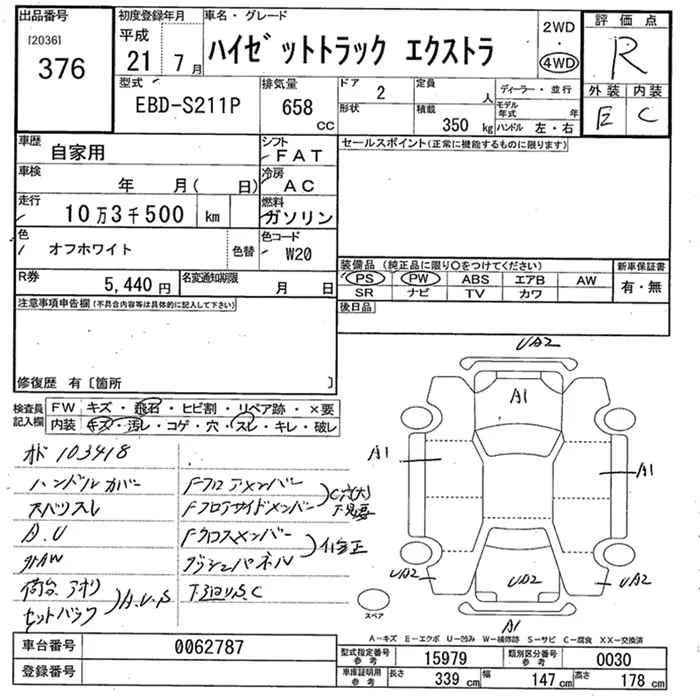 出品番号
[2036]
376
初度登録年月
平成
21 7月
車名・グレード
ハイゼットトラック エクストラ
2WD
4WD
評価点
R
外装 内装
E C
型式
EBD-S211P
排気量
658
cc
ドア
2
形状
定員
人
積載
350 kg
ディーラー・並行
モデル年式 年
ハンドル 左・右
車歴
自家用
シフト
FAT
車検
年 月( 日)
冷房
AC
走行
10万3千500 km
燃料
ガソリン
色
オフホワイト
色替
色コード
W20
R券
5,440円
名変通知期限
月 日
セールスポイント(正常に機能するものに限ります)
装備品 (純正品に限り〇をつけてください)
PS PW ABS エアB AW
SR ナビ TV カワ
新車保証書
有・無
後日品
注意事項申告欄(不具合内容等は具体的に記入して下さい)
修復歴 有〔箇所 〕
検査員
記入欄
FW キズ・飛石・ヒビ割・リペア跡・×要
内装 キズ・汚レ・コゲ・穴・スレ・キレ・破レ
オド 103418
ハンドルカバー
A.U
外AW
荷台アオリ
セットバック
A.U.S
Fフロアメンバー
Fフロアサイドメンバー
C穴(大)
下見要
Fクロスメンバー
ダッシュパネル
修正
下廻りS.C
UA2
A1
A1
A1
UA2
UA2
UA2
A1
スペア
A-キズ E-エクボ U-凹み W-補修跡 S-サビ C-腐食 XX-交換済
車台番号
0062787
登録番号
型式指定番号
参考
15979
類別区分番号
参考
0030
車庫証明用
参考
長さ 339 cm 幅 147 cm 高さ 178 cm